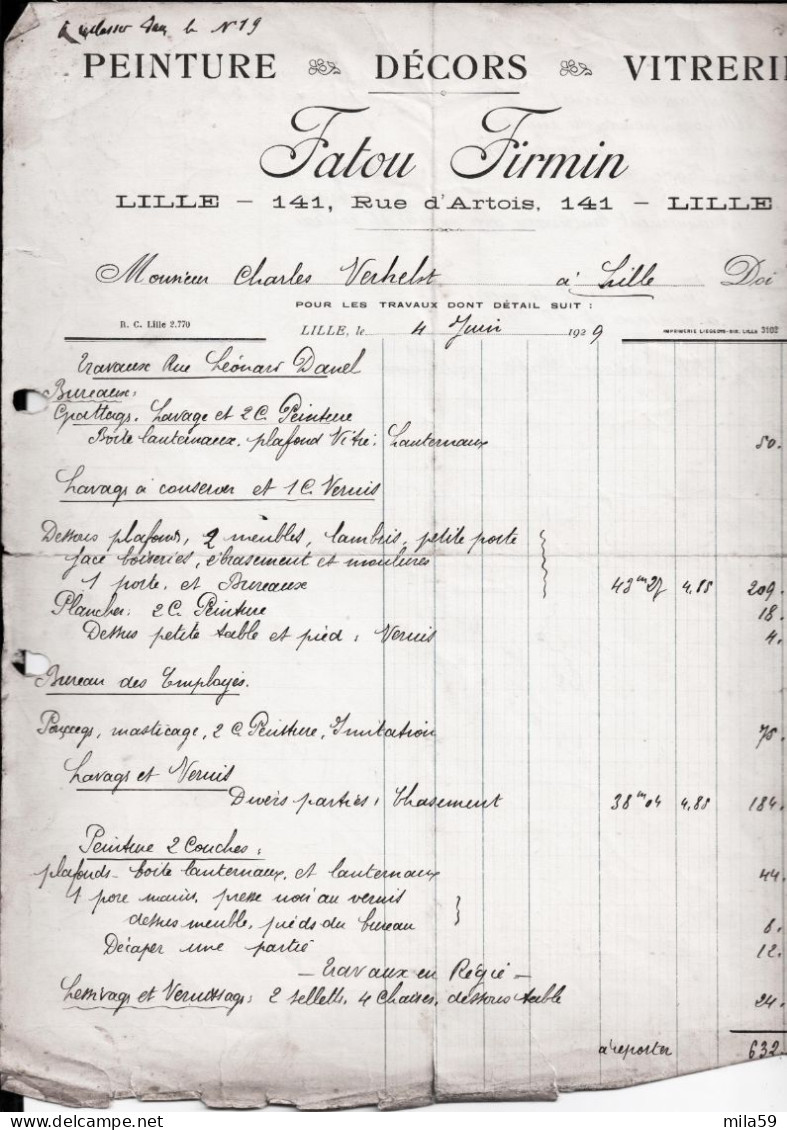 N° 19
PEINTURE DÉCORS VITRERIE
Fatou Firmin
LILLE – 141, Rue d'Artois, 141 – LILLE
Monsieur Charles Verhelst à Lille Doi
POUR LES TRAVAUX DONT DÉTAIL SUIT :
R. C. Lille 2.770 LILLE, le 4 Juin 1929 IMPRIMERIE LIEGEOIS-SIX, LILLE 3102
Travaux Rue Léonard Danel
Bureaux:
Grattags. Lavage et 2 C. Peinture
Boite lanternaux. plafond Vitré: Lanternaux 50.
Lavags à conserver et 1 C. Vernis
Dessous plafonds, 2 meubles, lambris, petite porte
face boiseries, ébrasement et moulures
1 porte, et Bureaux 43m27 4,85 209.
Plancher: 2 C. Peinture 18.
Dessus petite table et pied: Vernis 4.
Bureau des Employés.
masticage, 2 C. Peinture, Imitation 75.
Lavags et Vernis
Divers parties: 38m04 4,85 184.
Peinture 2 Couches:
plafonds - boite lanternaux, et lanternaux 44.
1 pore mains, presse noir au vernis
dessus meuble, pieds du bureau 8.
Décaper une partie 12.
– Travaux en Régie –
Lessivags et Vernissags: 2 selletts, 4 Chaises, dessous table 24.
à reporter 632.
mila59